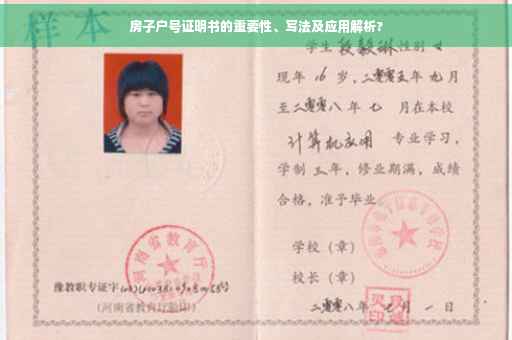 房子户号证明书的重要性、写法及应用解析?
样本
学生段毅琳性别女
现年16岁,二零零五年九月
至二零零八年七月在本校
计算机应用 专业学习,
学制三年,修业期满,成绩
合格,准予毕业。
学校(章)
校长(章)
二零零八年七月一日
河南省教育厅
豫教职专证字
(河南省教育厅验印)